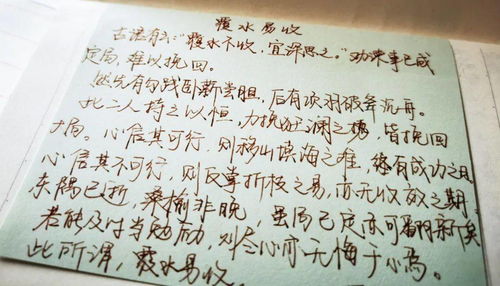 覆水易收
古语有云:"覆水不收,宜深思之。"劝谏事已成
定局,难以挽回。
然先有勾践卧薪尝胆,后有项羽破釜沉舟。
此二人持之以恒,力挽狂澜之中,皆挽回
大局。心信其可行,则移山填海之难,终有成功之日
心信其不可行,则反掌折枝之易,亦无收效之期
东隅已逝,桑榆非晚,虽局已定亦可翻新矣
若能及时当勉励,则尽心可无悔于心焉。
此所谓,覆水易收。